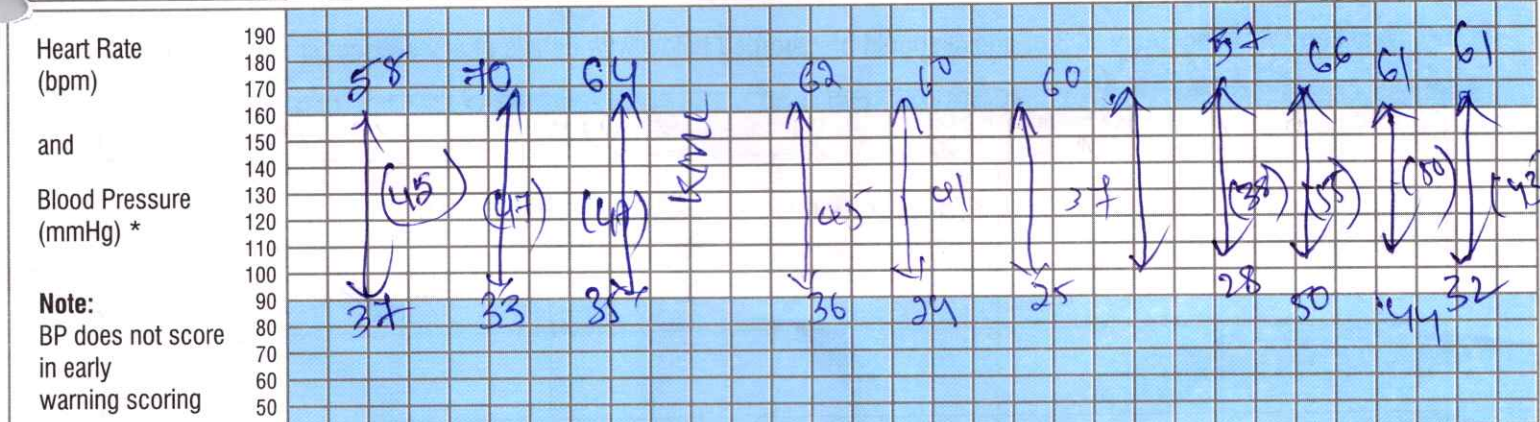 Heart Rate
(bpm)
and
Blood Pressure
(mmHg) *
Note:
BP does not score
in early
warning scoring
190
180
170
160
150
140
130
120
110
100
90
80
70
60
50
58 70 64 62 60 60 57 66 61 61
(45) (47) (47) 45 41 37 (38) (55) (50) (43
37 33 35 36 24 25 28 50 44 32